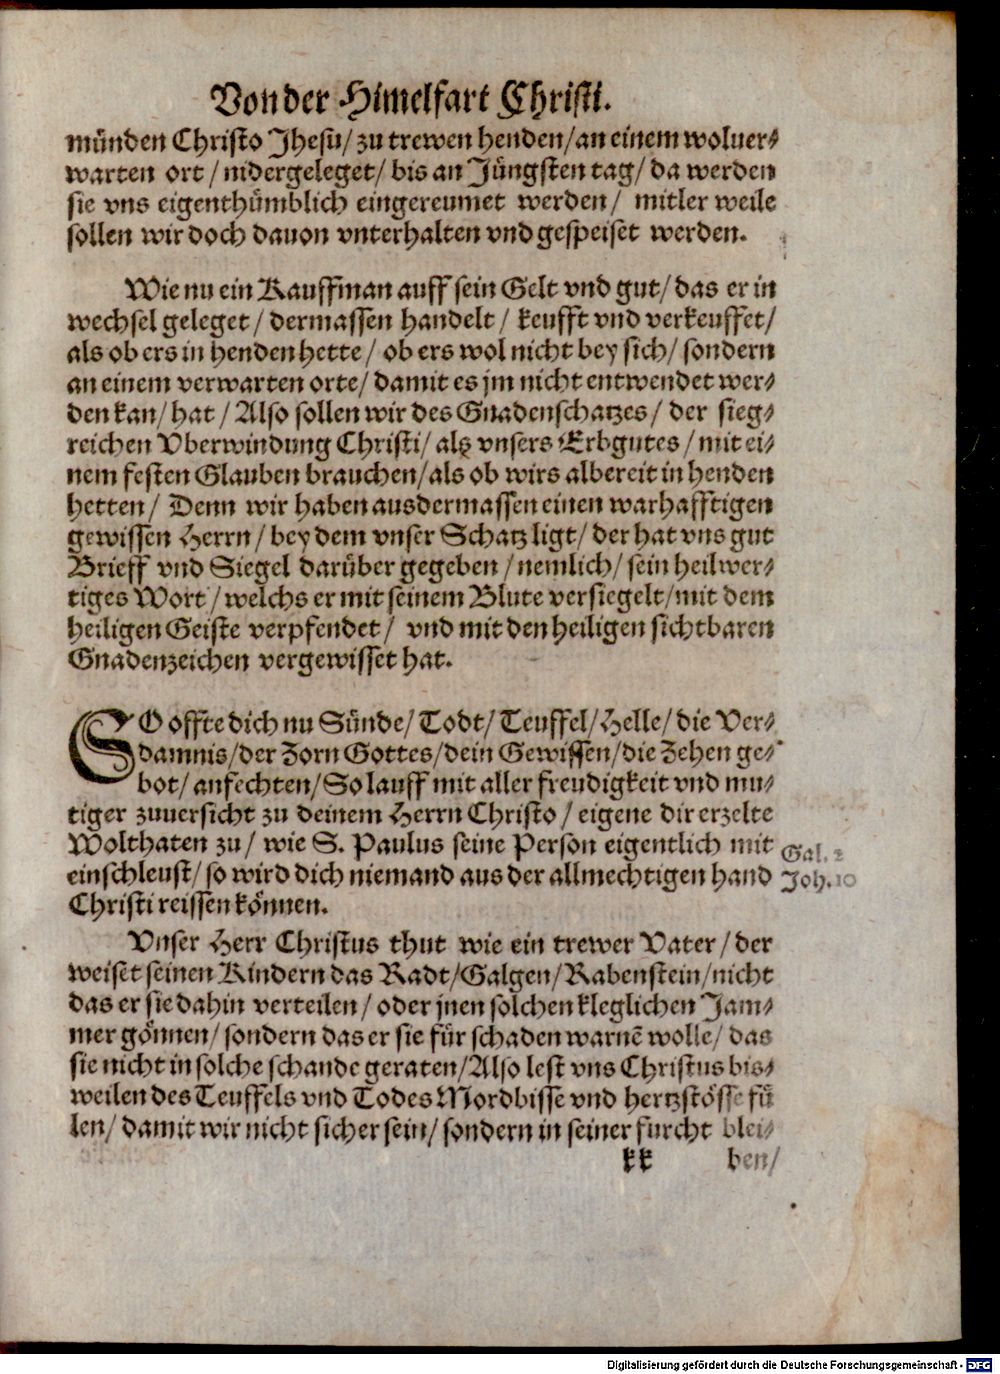 Von der Himelfart Christi.
münden Christo Jhesu/ zu trewen henden/ an einem woluer-
warten ort/ nidergeleget/ bis an Jüngsten tag/ da werden
sie vns eigenthümblich eingereumet werden/ mitler weile
sollen wir doch dauon vnterhalten vnd gespeiset werden.
Wie nu ein Kauffman auff sein Gelt vnd gut/ das er in
wechsel geleget/ dermassen handelt/ keufft vnd verkeuffet/
als ob ers in henden hette/ ob ers wol nicht bey sich/ sondern
an einem verwarten orte/ damit es jm nicht entwendet wer-
den kan/ hat/ Also sollen wir des Gnadenschatzes/ der sieg-
reichen Vberwindung Christi/ als vnsers Erbgutes/ mit ei-
nem festen Glauben brauchen/ als ob wirs albereit in henden
hetten/ Denn wir haben ausdermassen einen warhafftigen
gewissen Herrn/ bey dem vnser Schatz ligt/ der hat vns gut
Brieff vnd Siegel darüber gegeben/ nemlich/ sein heilwer-
tiges Wort/ welchs er mit seinem Blute versiegelt/ mit dem
heiligen Geiste verpfendet/ vnd mit den heiligen sichtbaren
Gnadenzeichen vergewisset hat.
SO offte dich nu Sünde/ Todt/ Teuffel/ Helle/ die Ver-
damnis/ der Zorn Gottes/ dein Gewissen/ die Zehen ge-
bot/ anfechten/ So lauff mit aller freudigkeit vnd mu-
tiger zuuersicht zu deinem Herrn Christo/ eigene dir erzelte
Wolthaten zu/ wie S. Paulus seine Person eigentlich mit
Gal. 2
einschleust/ so wird dich niemand aus der allmechtigen hand
Joh. 10
Christi reissen können.
Vnser Herr Christus thut wie ein trewer Vater/ der
weiset seinen Kindern das Radt/ Galgen/ Rabenstein/ nicht
das er sie dahin verteilen/ oder jnen solchen kleglichen Jam-
mer gönnen/ sondern das er sie für schaden warnē wolle/ das
sie nicht in solche schande geraten/ Also lest vns Christus bis-
weilen des Teuffels vnd Todes Mordbisse vnd hertzstösse fü
len/ damit wir nicht sicher sein/ sondern in seiner furcht blei-
kk ben/
Digitalisierung gefördert durch die Deutsche Forschungsgemeinschaft - DFG